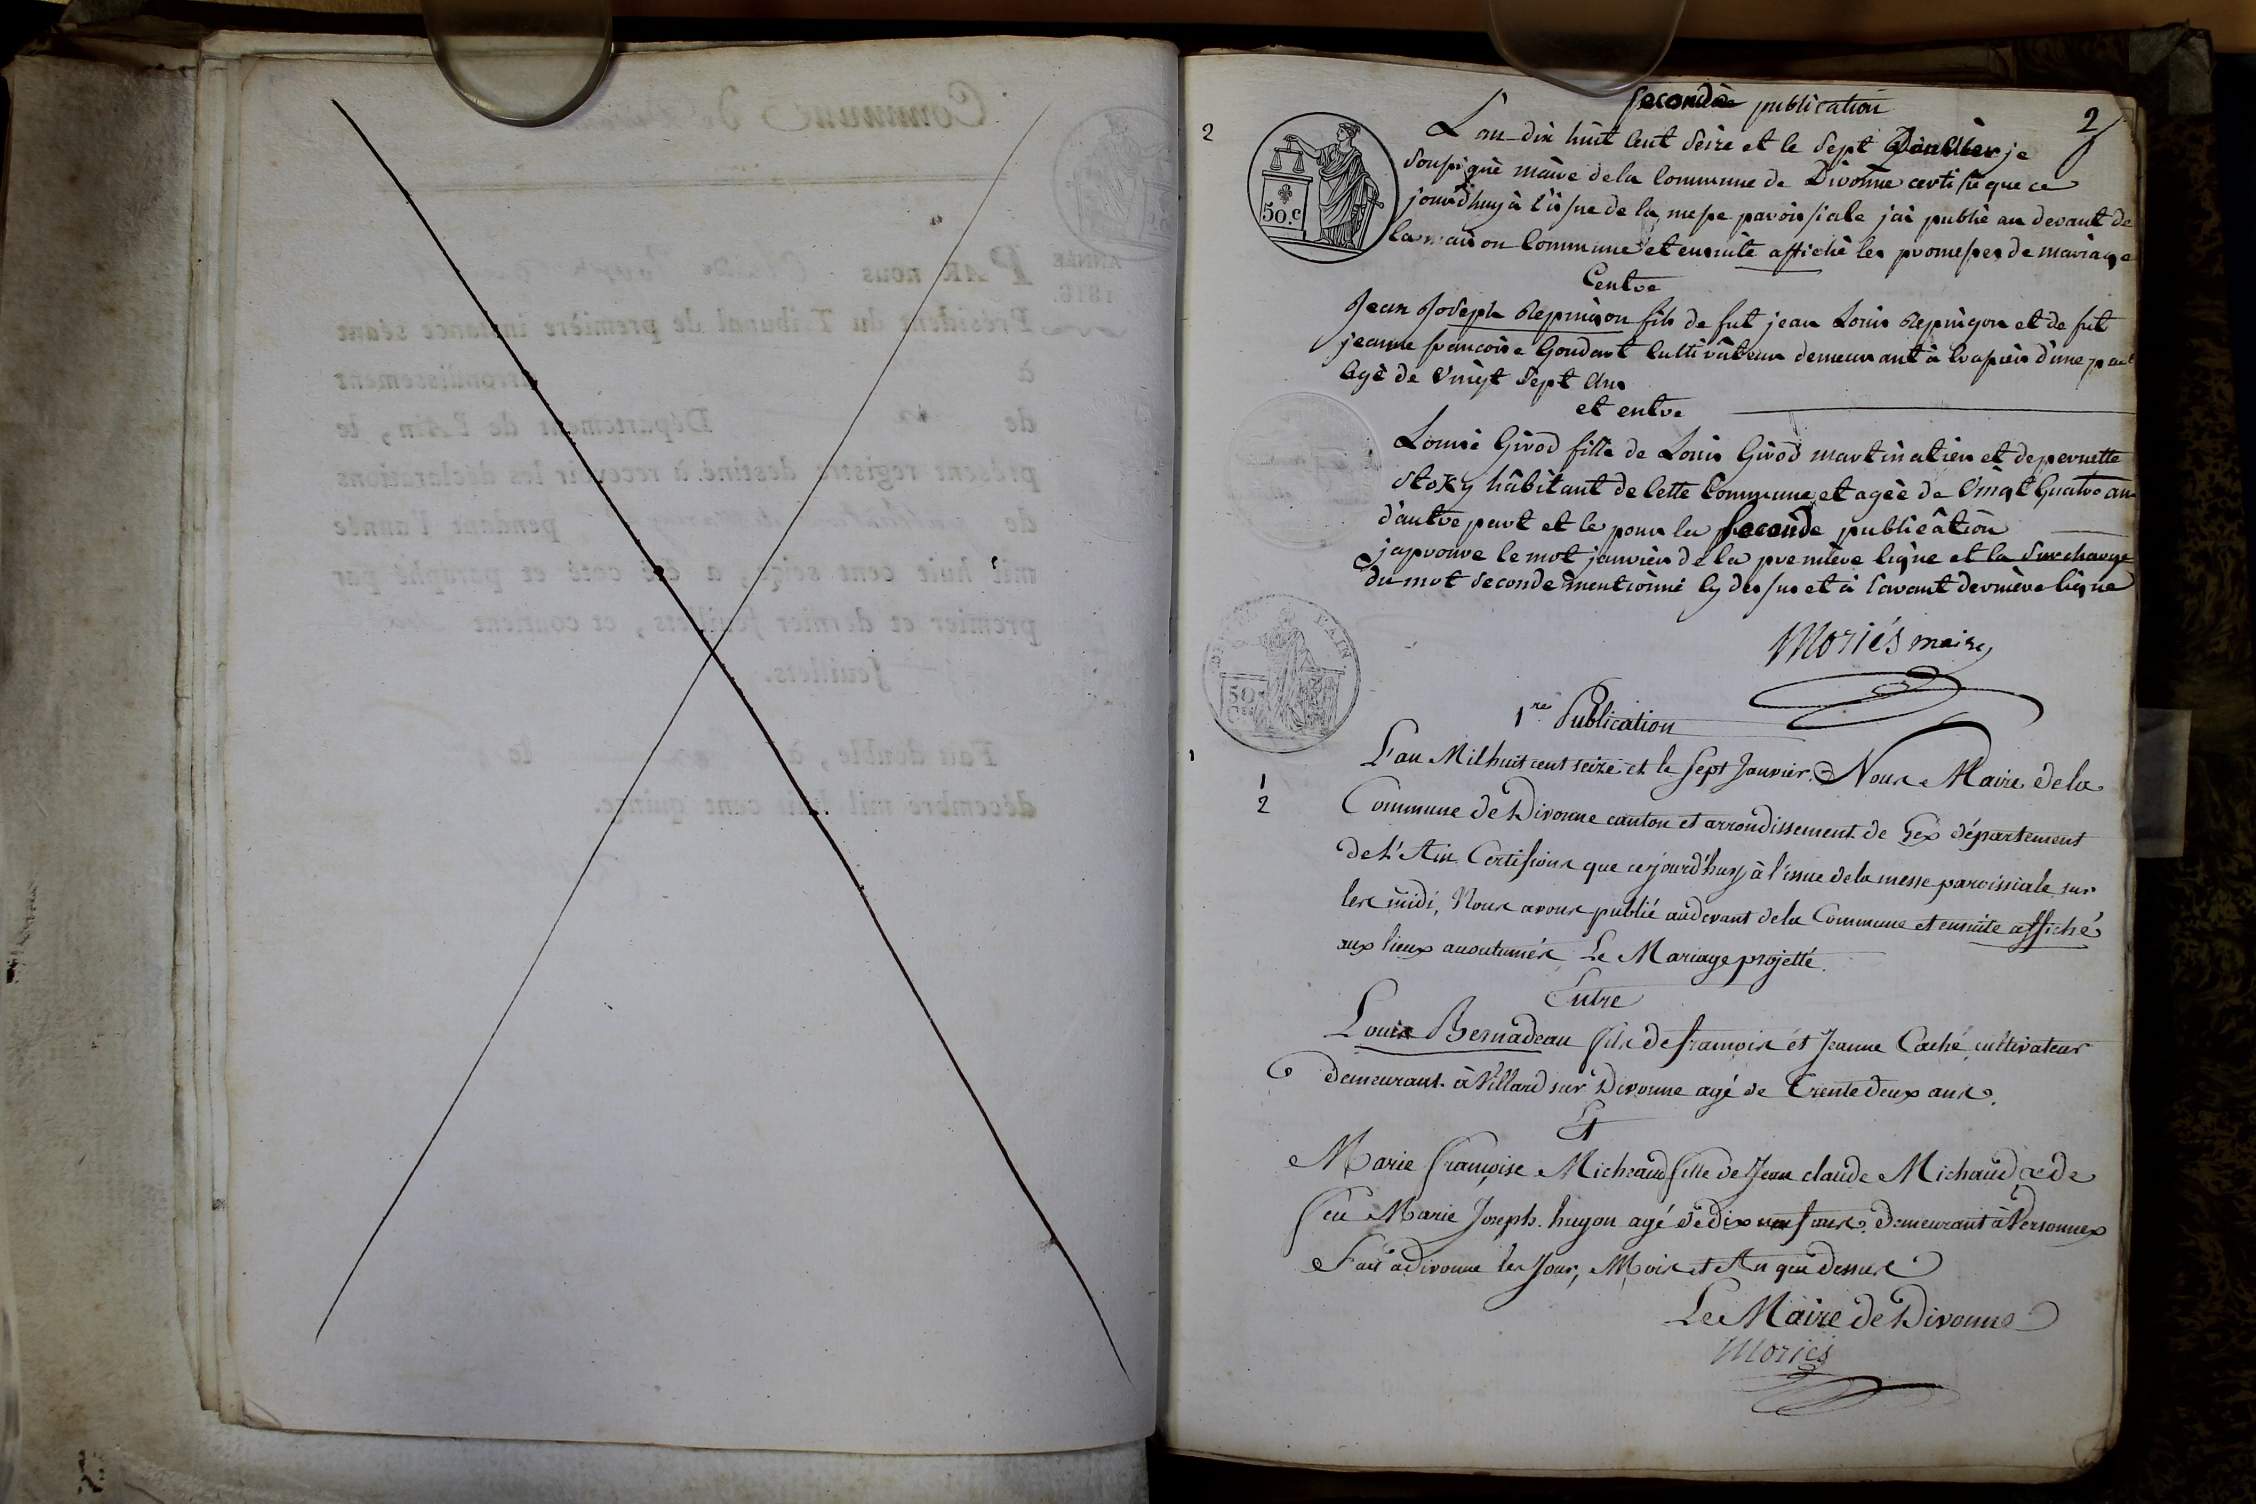 seconde publication
2
2
L'an dix huit Cent Seize et le Sept Janvier je
Soussigné maire dela Commune de Divonne certifie que ce
jourd'huy à l'issue de la messe paroissiale jai publié au devant de
la maison Commune et ensuite affiché les promesses de mariage
Centre
50.c
Jean Joseph Repingon fils de fut jean Louis Repingon et de fut
jeanne francoise Goudart Cultivateur demeurant à d'une part
agé de Vingt Sept Ans
et entre
Louise Girod fille de Louis Girod et de pernette
hâbitant de Cette Commune et agée de Vingt Quatre ans
d'autre part et le pour la Seconde publicâtion
japrouve le mot janvier de la première ligne et la Surcharge
du mot seconde mentionné cy dessus et à l'avant dernière ligne
Moriés maire
AIN.
50
1re Publication
1
L'an Mil huit cent seize et le Sept Janvier. Nous Maire de la
1
2
Commune de Divonne canton et arrondissement de Gex département
de l'Ain Certifions que cejourd'huy à l'issue de la messe paroissiale sur
les midi, Nous avons publié audevant dela Commune et ensuite affiché
aux lieux accoutumés Le Mariage projetté.
Entre
Louis Bernadeau fils de francois et Jeanne Caché, cultivateur
demeurant à Villard sur Divonne agé de Trente deux ans.
Et
Marie françoise Micheaud fille de Jean claude Michaud & de
feu Marie Joseph hugon agé de dix neuf ans. demeurant à Versonnex
Fait à Divonne les Jour, Mois et An que dessus
Le Maire de Divonne
Moriés
Commune de
ANNÉE
1816.
PAR nous
Président du Tribunal de première instance séant
à arrondissement
de Département de l'Ain, le
présent registre destiné à recevoir les déclarations
de pendant l'année
mil huit cent seize, a été coté et paraphé par
premier et dernier feuillets, et contient
feuillets.
Fait double, à le
décembre mil huit cent quinze.